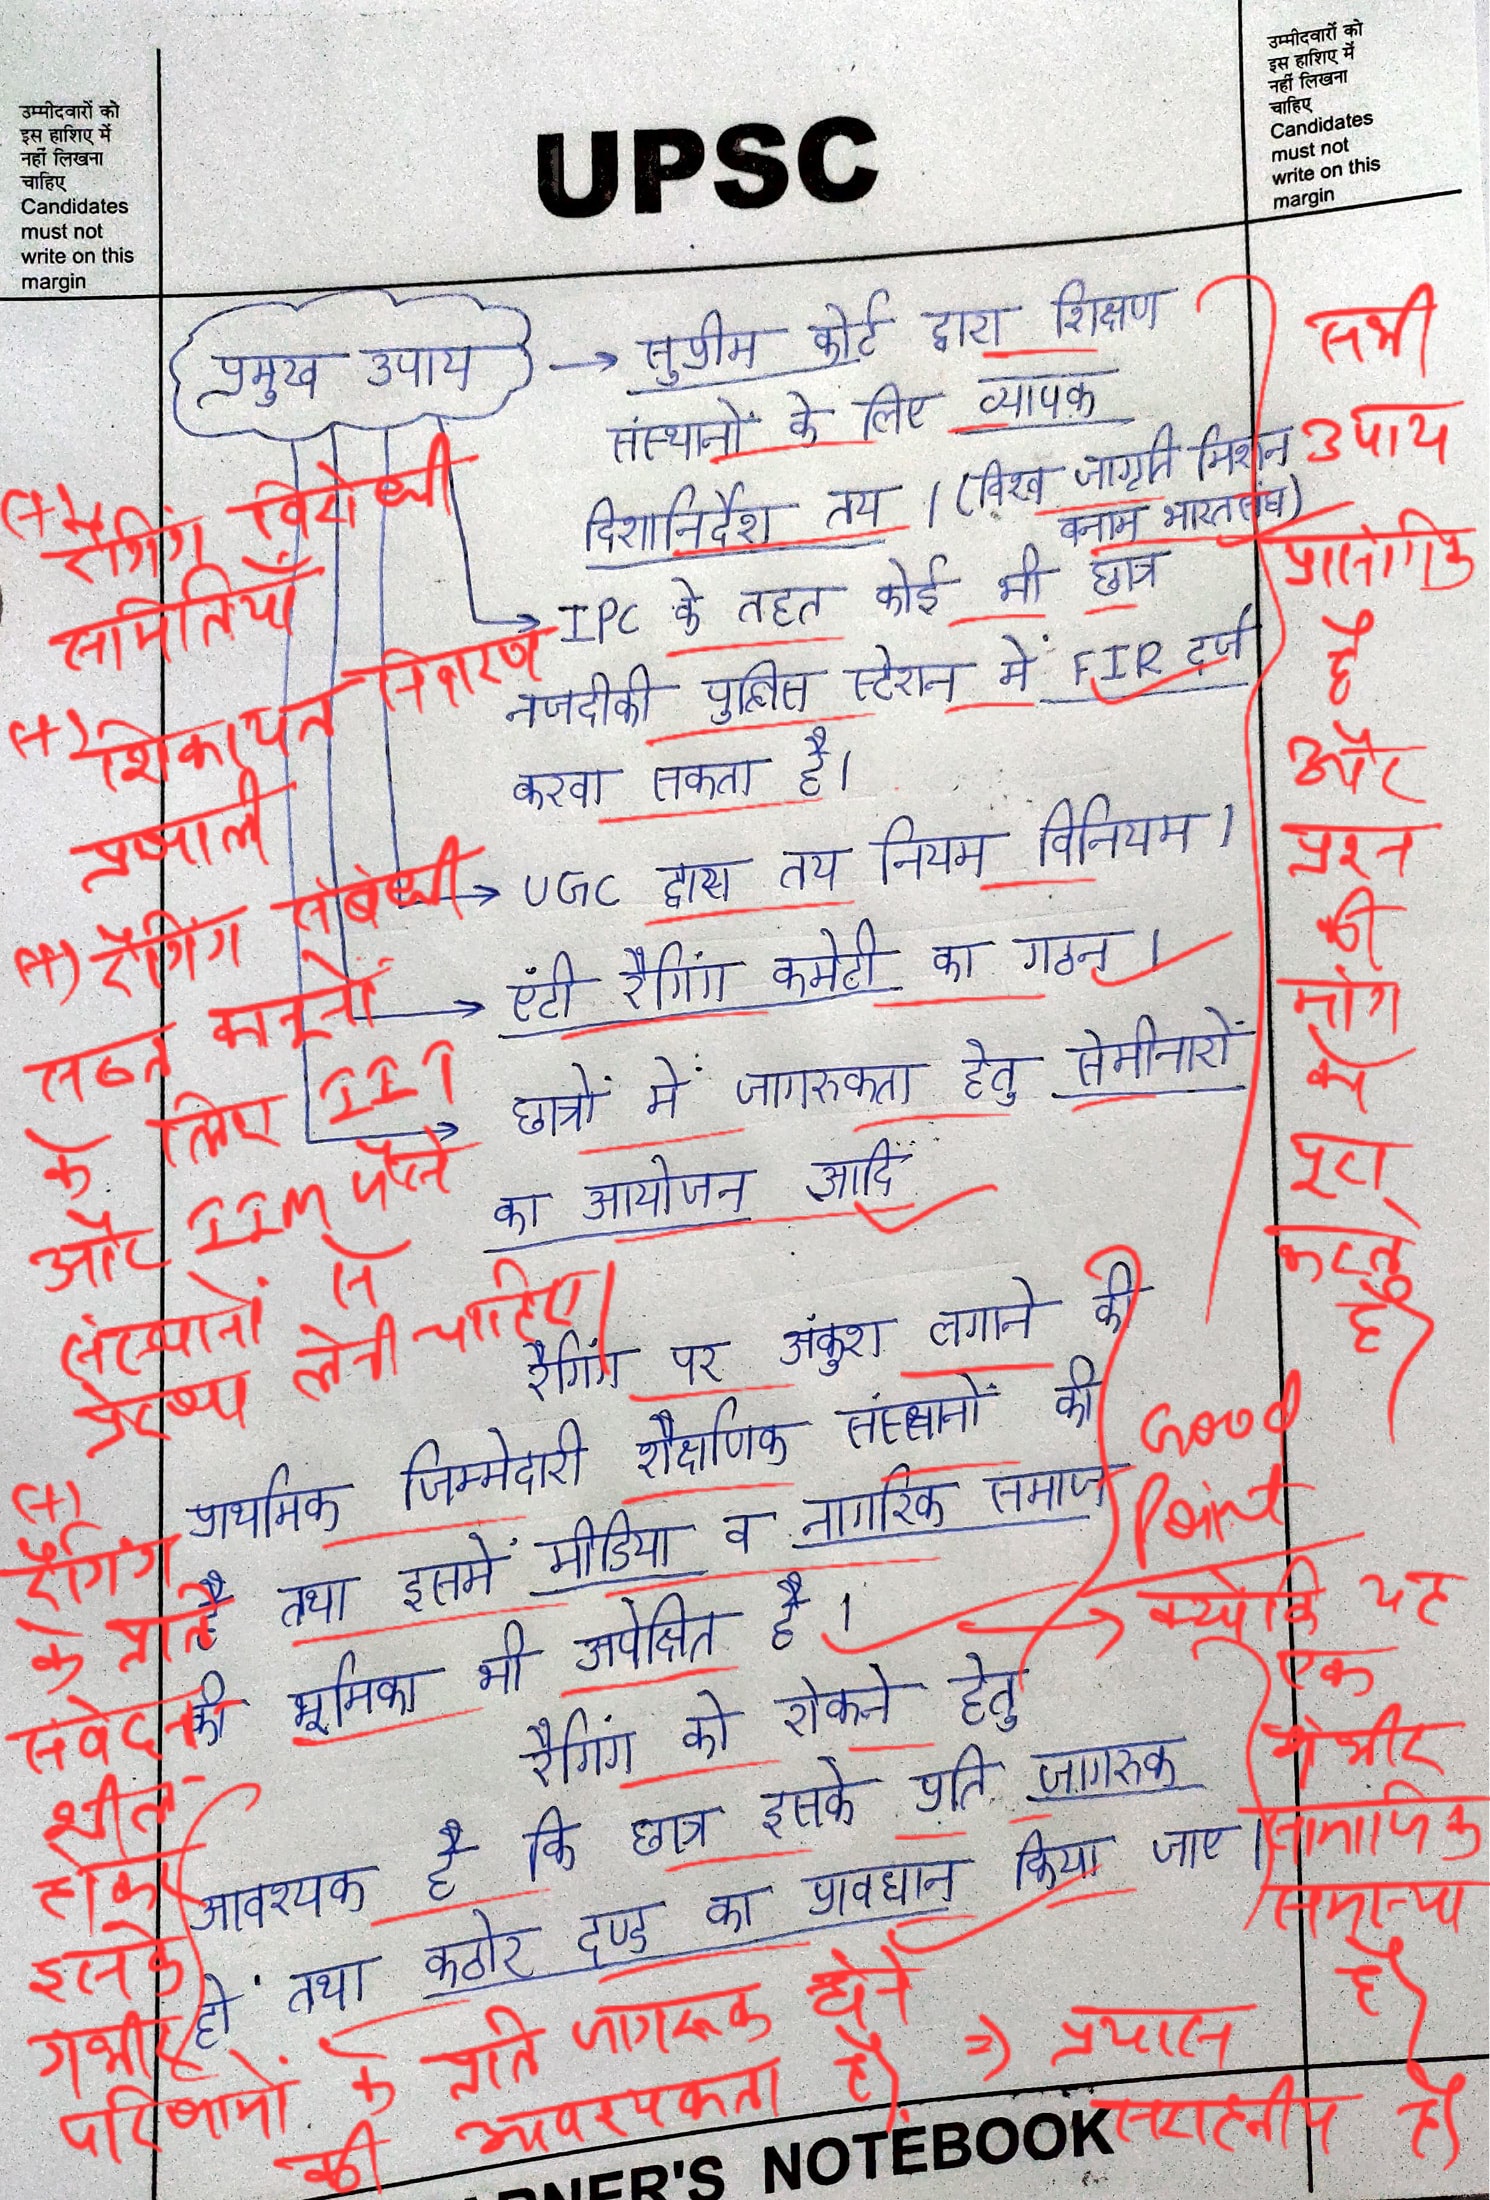 उम्मीदवारों को
इस हाशिए में
नहीं लिखना
चाहिए
Candidates
must not
write on this
margin
UPSC
उम्मीदवारों को
इस हाशिए में
नहीं लिखना
चाहिए
Candidates
must not
write on this
margin
प्रमुख उपाय → सुप्रीम कोर्ट द्वारा शिक्षण
संस्थानों के लिए व्यापक
दिशानिर्देश तय । (विश्व जागृति मिशन
बनाम भारत संघ)
→ IPC के तहत कोई भी छात्र
नजदीकी पुलिस स्टेशन में FIR दर्ज
करवा सकता है।
→ UGC द्वारा तय नियम विनियम ।
→ एंटी रैगिंग कमेटी का गठन ।
→ छात्रों में जागरुकता हेतु सेमीनारों
का आयोजन आदि
रैगिंग पर अंकुश लगाने की
प्राथमिक जिम्मेदारी शैक्षणिक संस्थानों की
है तथा इसमें मीडिया व नागरिक समाज
की भूमिका भी अपेक्षित है ।
रैगिंग को रोकने हेतु
आवश्यक है कि छात्र इसके प्रति जागरुक
हों तथा कठोर दण्ड का प्रावधान किया जाए ।
(+) रैगिंग विरोधी
समितियाँ
(+) शिकायत निवारण
प्रणाली
(+) रैगिंग संबंधी
सख्त कानूनों
के लिए IIT
और IIM जैसे
संस्थानों से
प्रेरणा लेनी चाहिए।
(+)
रैगिंग
के प्रति
संवेदन
शील
होकर
इसके
गंभीर
परिणामों के प्रति जागरूक होने
की आवश्यकता है।
सभी
उपाय
प्रासंगिक
है
और
प्रश्न
की
मांग
को
पूरा
करते
है।
Good
Point
→ क्योंकि यह
एक
गंभीर
सामाजिक
समस्या
है।
⇒ प्रयास
सराहनीय है।
NER'S NOTEBOOK